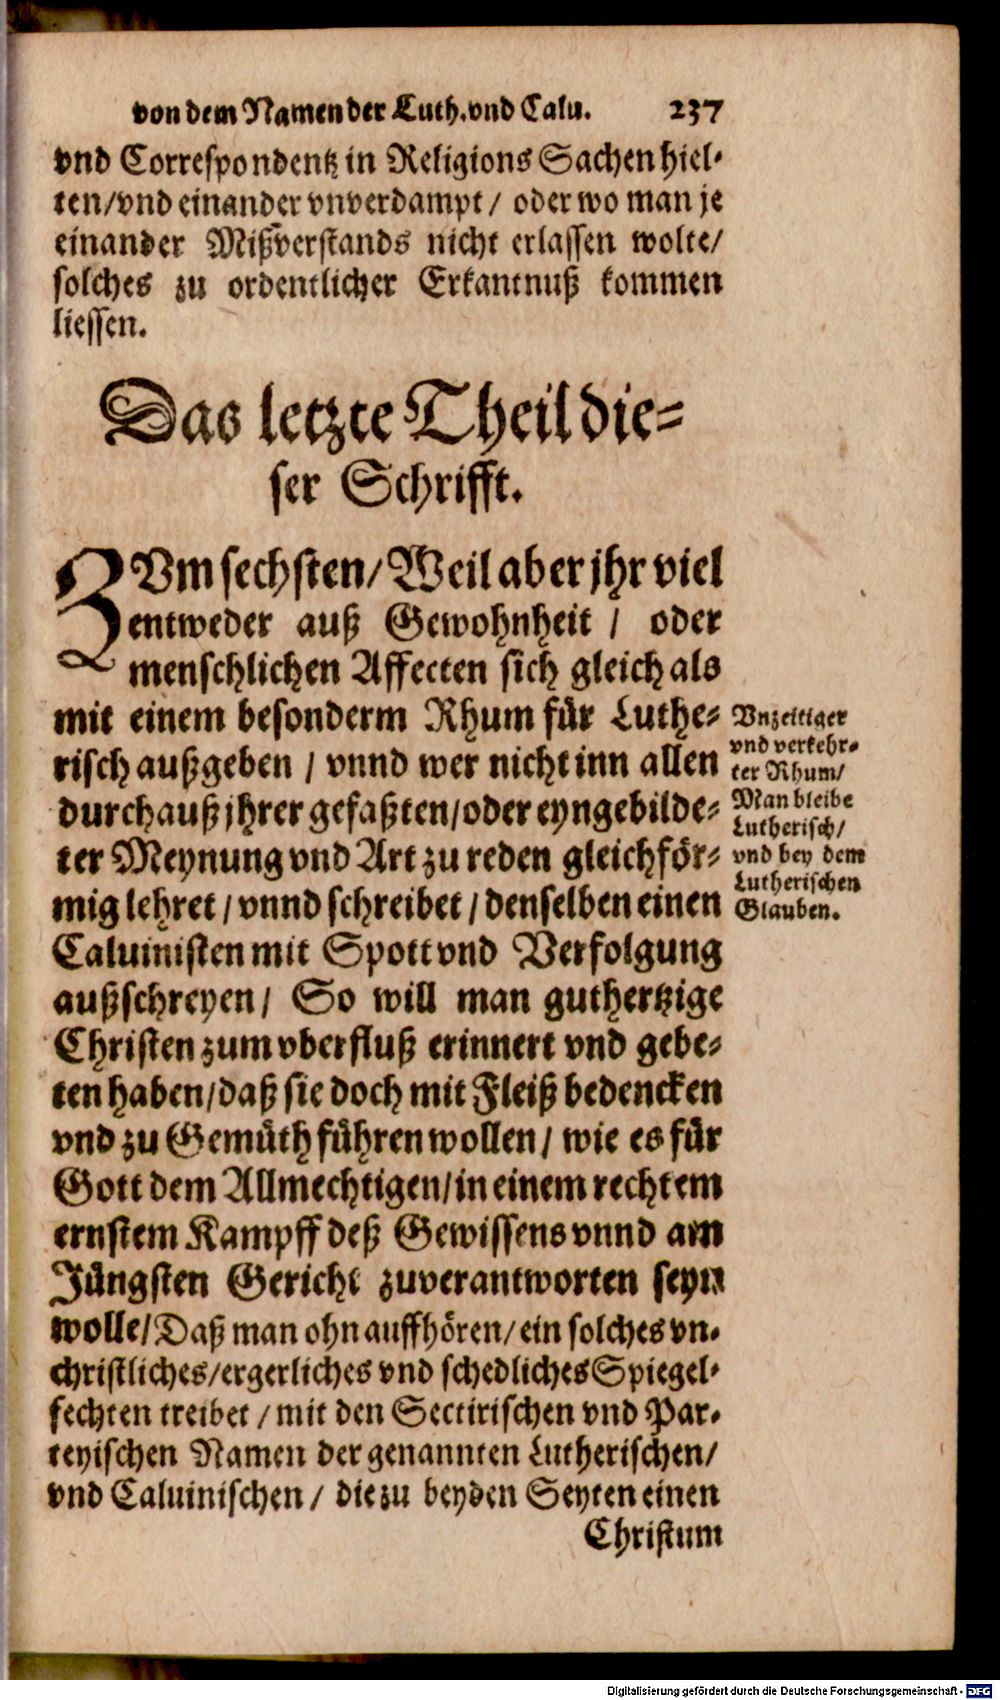 von dem Namen der Luth. vnd Calu. 237
vnd Correspondentz in Religions Sachen hiel-
ten/ vnd einander vnverdampt/ oder wo man je
einander Mißverstands nicht erlassen wolte/
solches zu ordentlicher Erkantnuß kommen
liessen.
Das letzte Theil die-
ser Schrifft.
ZVm sechsten/ Weil aber jhr viel
entweder auß Gewohnheit / oder
menschlichen Affecten sich gleich als
mit einem besonderm Rhum für Luthe-
risch außgeben / vnnd wer nicht inn allen
durchauß jhrer gefaßten/ oder eyngebilde-
ter Meynung vnd Art zu reden gleichför-
mig lehret / vnnd schreibet / denselben einen
Caluinisten mit Spott vnd Verfolgung
außschreyen/ So will man guthertzige
Christen zum vberfluß erinnert vnd gebe-
ten haben/ daß sie doch mit Fleiß bedencken
vnd zu Gemüth führen wollen/ wie es für
Gott dem Allmechtigen/ in einem rechtem
ernstem Kampff deß Gewissens vnnd am
Jüngsten Gericht zuverantworten seyn
wolle/ Daß man ohn auffhören/ ein solches vn-
christliches/ ergerliches vnd schedliches Spiegel-
fechten treibet / mit den Sectirischen vnd Par-
teyischen Namen der genannten Lutherischen/
vnd Caluinischen / die zu beyden Seyten einen
Christum
Vnzeitiger
vnd verkehr-
ter Rhum/
Man bleibe
Lutherisch/
vnd bey dem
Lutherischen
Glauben.
Digitalisierung gefördert durch die Deutsche Forschungsgemeinschaft - DFG